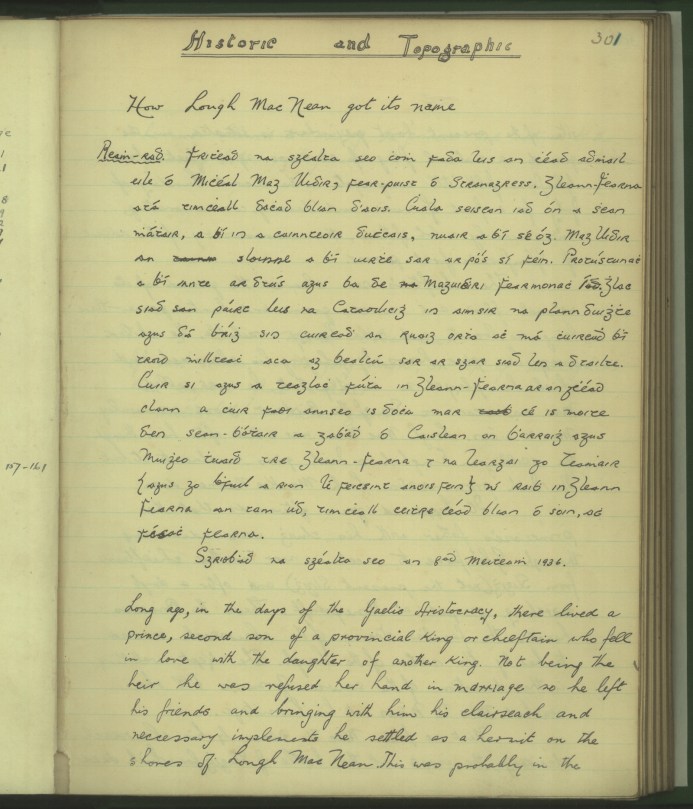 301
Historic and Topographic
How Lough Mac Nean got its name
Reamh-rádh. Fríċeaḋ na sgéalta seo ċoṁ fada leis an céad aḋmáil
eile ó Micéal Mag Uidhir, fear-puist ó Stranagress. Gleann-Fearna
atá timċeall dáċad blian d'aois. Cuala seisean iad ón a sean
ṁáṫair, a bí in a cainnteoir duṫċais, nuair a bí sé óg. Mag Uidhir
an sloinne a bí uirṫe sar ar pós sí féin. Protústunaċ
a bí innte ar dtús agus ba de Maguidhri Fearmonaċ iad. Ġlac
siad san páirt leis na Catoiliciġ in aimsir na plannduiġte
agus dá ḃríġ sin cuireaḋ an ruaig orṫa aċ má cuireaḋ bí
troid ṁillteaċ aca ag bealtú sar ar sgar siad len a dtailte.
Cuir sí agus a teaglaċ fúṫa in Gleann-Fearna ar an gcéad
clann a ċuir faoi annseo is dóċa mar cé is moite
den sean-ḃóṫair a gaḃaḋ ó Caislean an Ḃarraiġ agus
Muigeo tuaiḋ tre Gleann-Fearna ⁊ na Leargaí go Teaṁair
{agus go ḃfuil a rian le feicsint anois féin} ní raiḃ in Gleann
Fearna an tam úd, timċeall ceiṫre céad blian ó soin, aċ
fásaċ fearna.
Sgríoḃaḋ na sgéalta seo an 8aḋ Meiṫeaṁ 1936.
107-161
Long ago, in the days of the Gaelic Aristocracy, there lived a
prince, second son of a provincial King or chieftain who fell
in love with the daughter of another King. Not being the
heir he was refused her hand in marriage so he left
his friends and bringing with him his clairseach and
neccessary implements he settled as a hermit on the
shores of Lough Mac Nean. This was probably in the